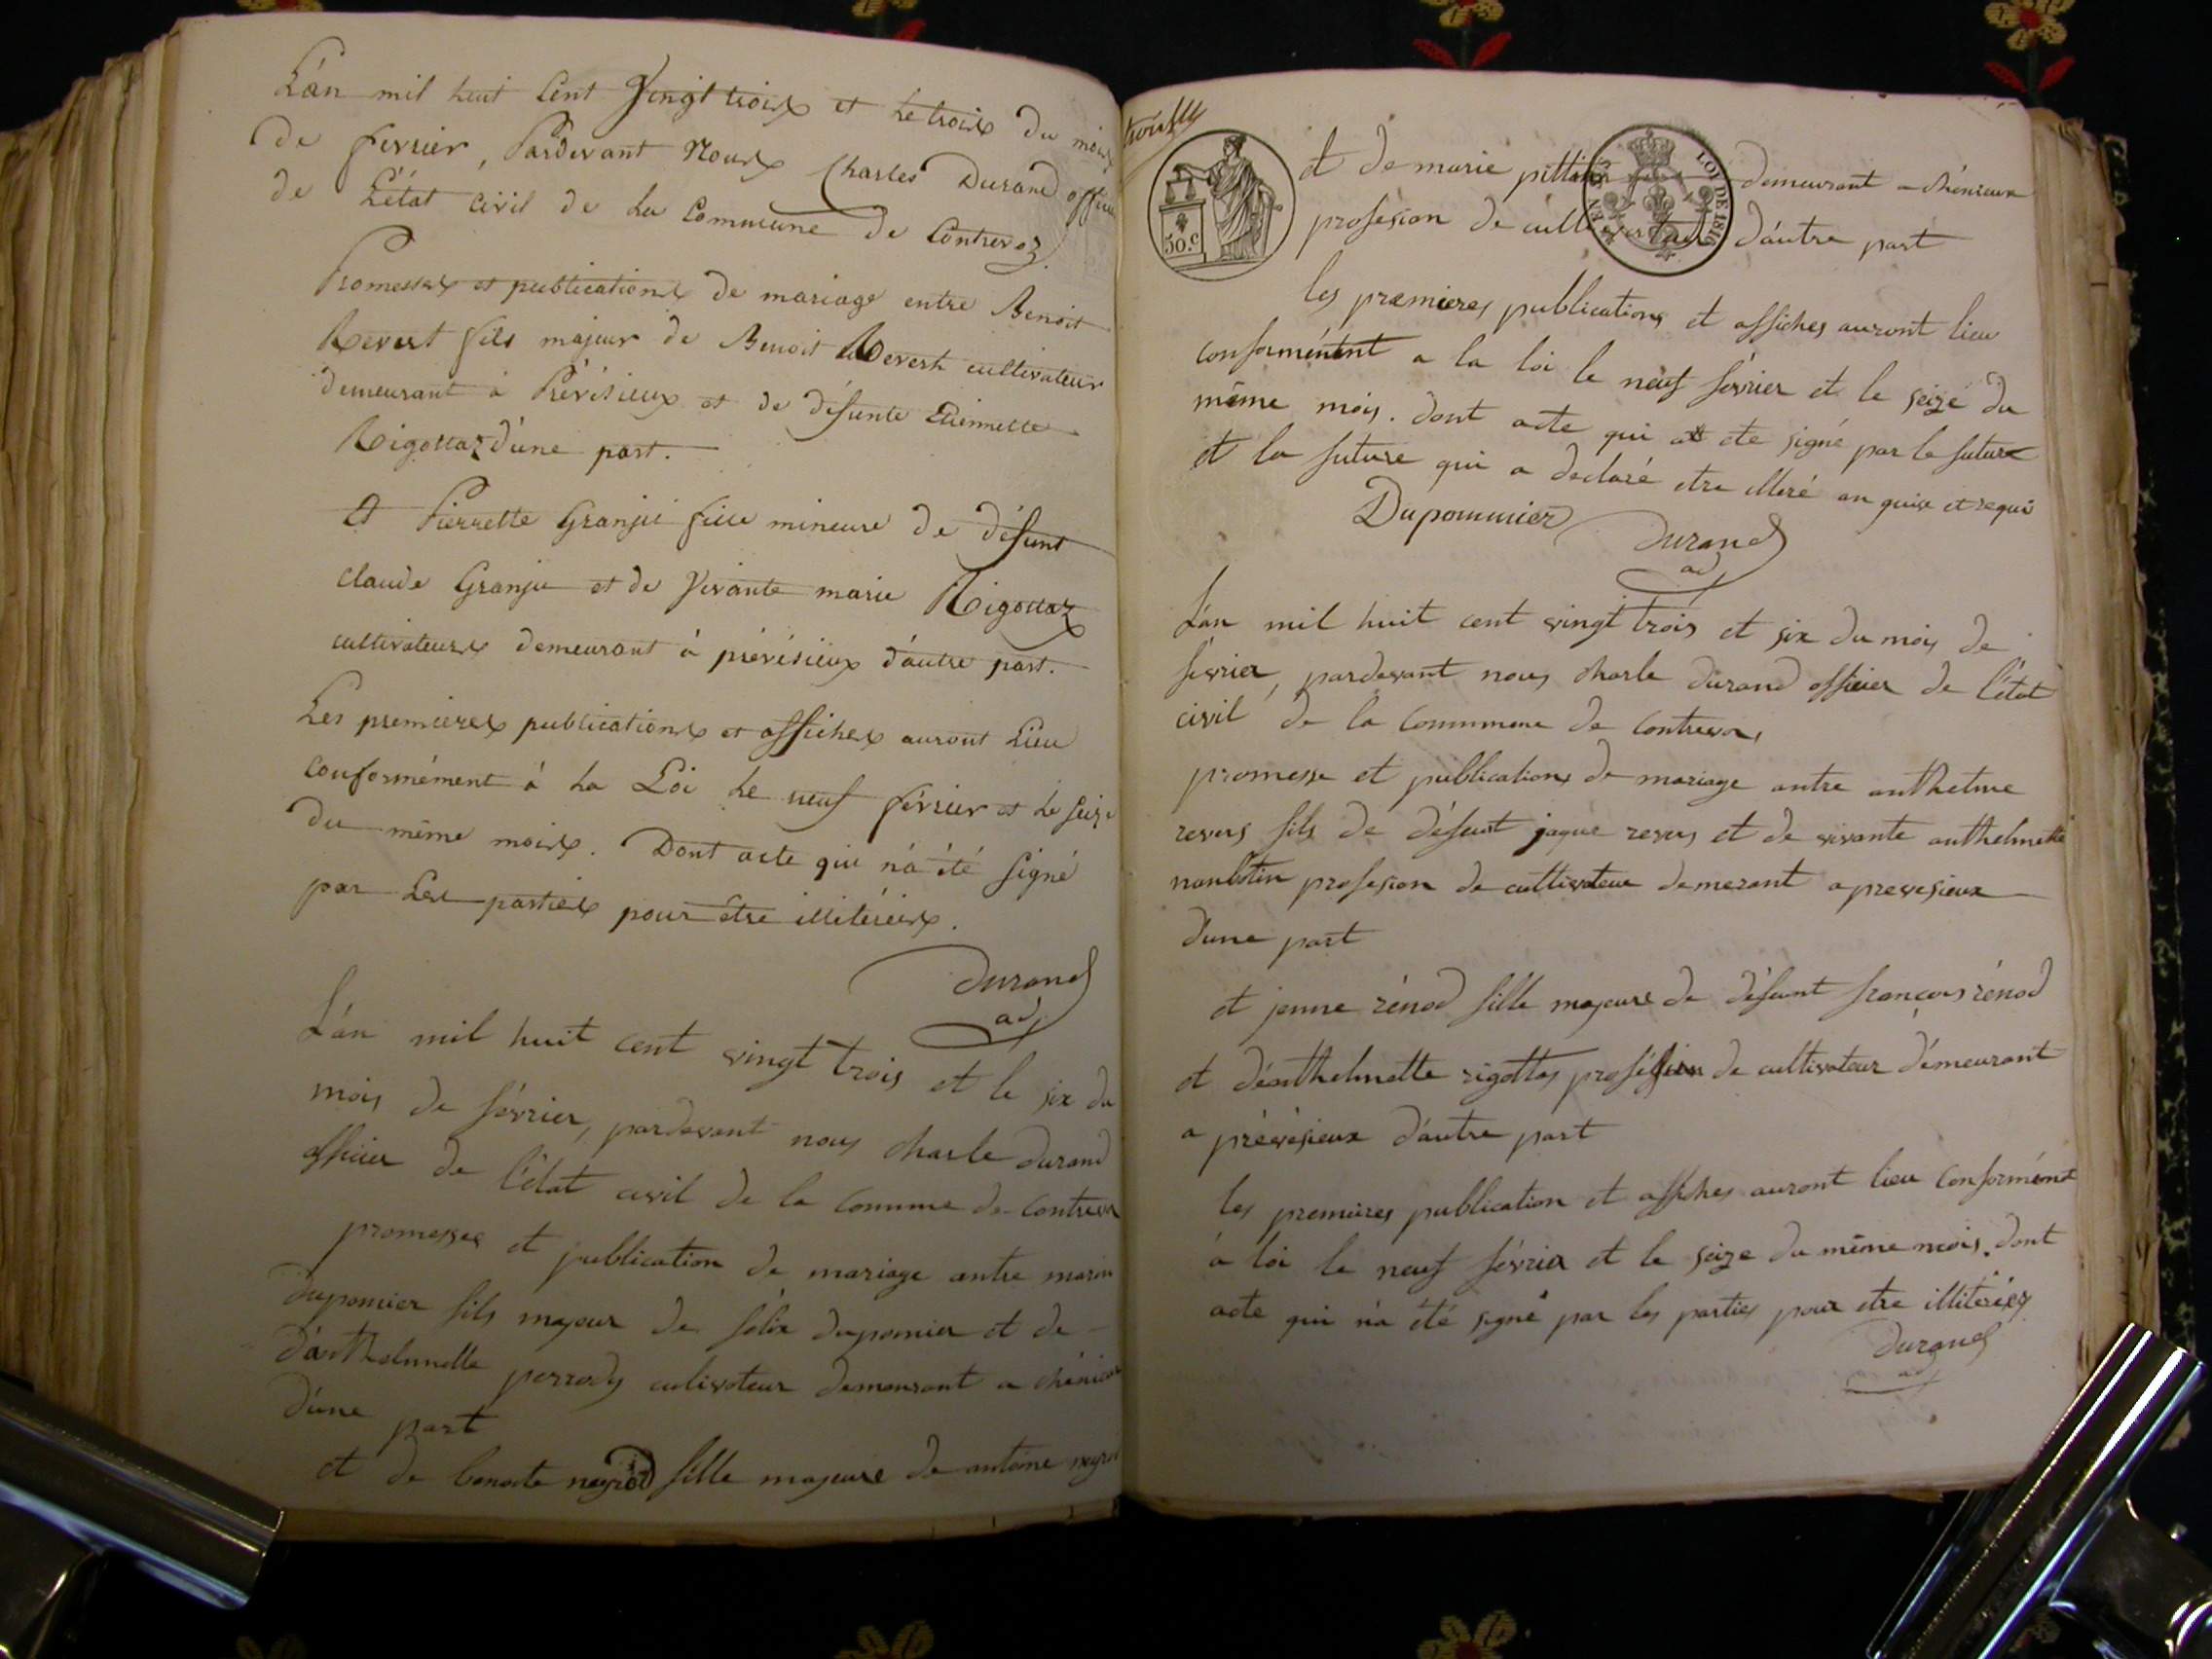 L'án mil huit Cent Vingt trois et Le trois du mois
de fevrier, Pardevant Nous Charles Durand officier
de L'état civil de La Commune de Contrevoz.
Promesses et publications de mariage entre Benoit
Revest fils májeur de Benoit Revest cultivateur
demeurant à Prévésieux et de défunte Etiennette
Rigottaz d'úne part.
Et Pierrette Granjé fille mineure de défunt
claude Granju et de Vivante marie Rigottaz
cultivateurs demeurant à prévésieux d'autre part.
Les premieres publications et affiches auront Lieu
conformément à La Loi Le neuf février et Le seize
du même mois. Dont acte qui n'a été signé
par Les parties pour être illitéries.
Durand
adj
L'án mil huit cent vingt trois et le six du
mois de février, pardevant nous charle durand
officier de l'état civil de la comune de contrevoz
promesses et publication de mariage antre marin
dupomier fils majeur de félix dupomier et de
d'anthelmette perrody culivateur demeurant a chénieux
d'úne part
et de benoite neyrod fille majeure de antoine neyrod
et de marie demeurant a chénieux
profesion de cultivateur d'áutre part
30.c
LOI DE 1816
les premieres publications et affiches auront lieu
conforméntent a la loi le neuf février et le seize du
même mois. dont acte qui a ete signé par le future
et la future qui a declaré etre illeré an quise et requi
Dupoumier
Durand
ad
L'án mil huit cent vingt trois et six du mois de
février, pardevant nous charle durand officier de l'état
civil de la commmune de contrevos,
promesse et publications de mariage antre anthelme
revers fils de défunt jaque revers et de vivante anthelmette
profesion de cultivateur demerant a prevesieux
d'une part
et jenne rénod fille majeure de défunt françois rénod
et déanthelmette rigottas profésion de cultivateur démeurant
a prévésieux d'áutre part
les premieres publication et affiches auront lieu conformént
á loi le neuf févrie et le seize du même mois. dont
acte qui n'a été signé par les parties pour etre illitéries
Durand
ad